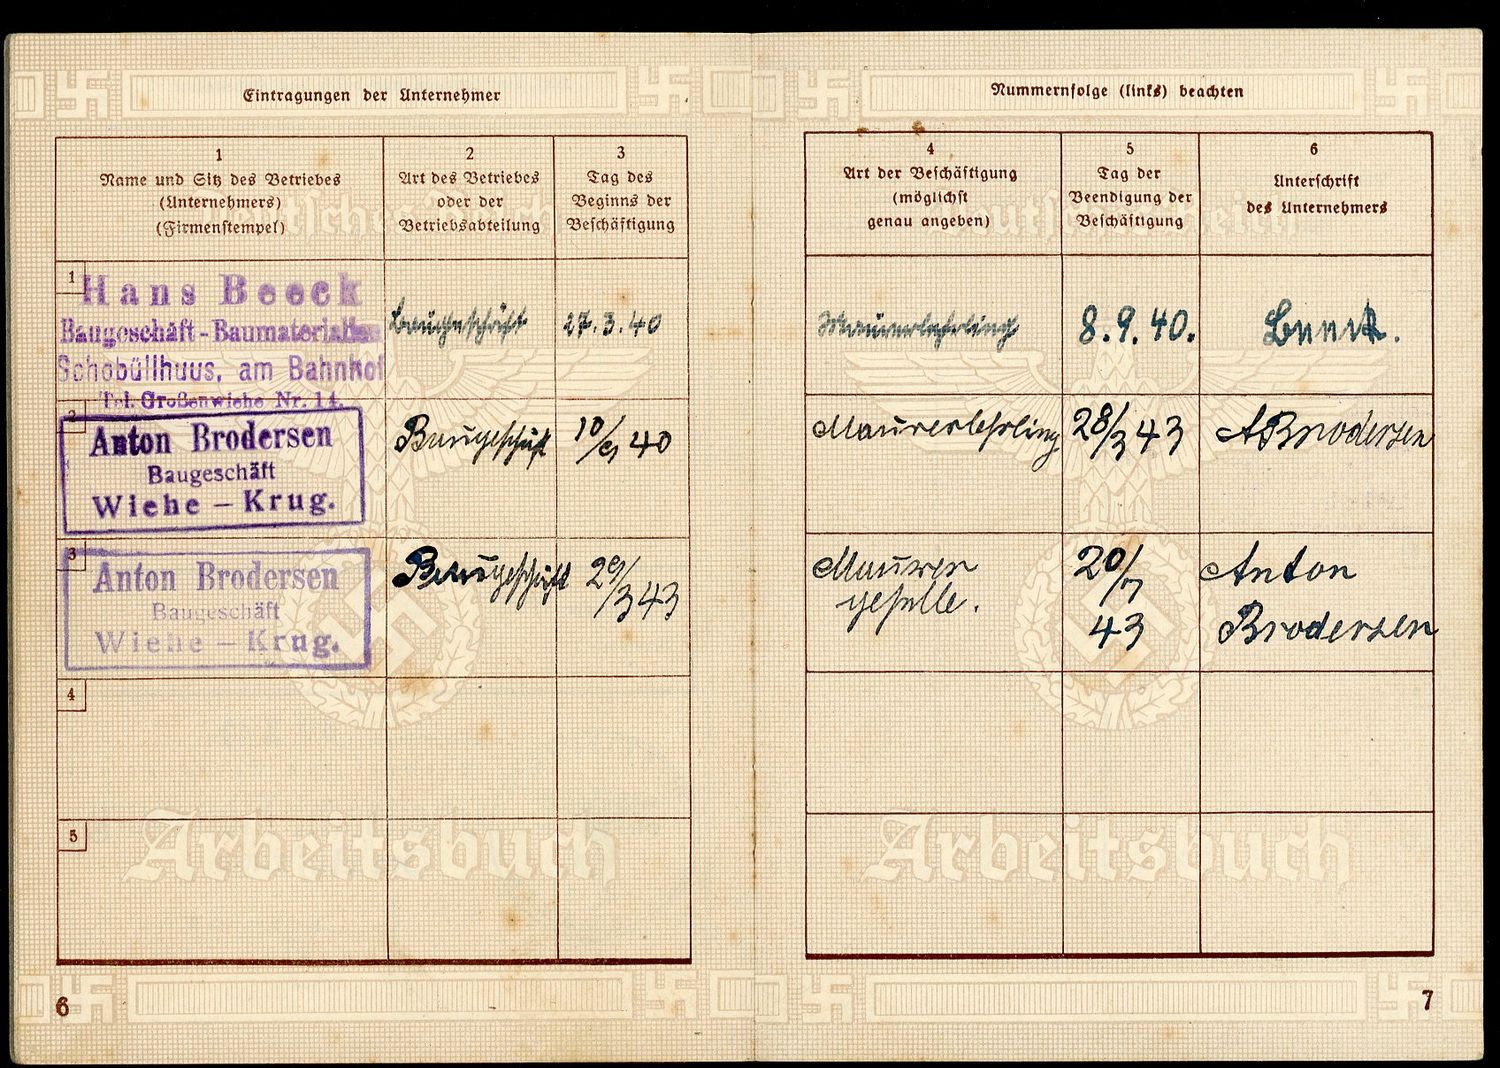 Eintragungen der Unternehmer
1
Name und Sitz des Betriebes
(Unternehmers)
(Firmenstempel)
2
Art des Betriebes
oder der
Betriebsabteilung
3
Tag des
Beginns der
Beschäftigung
1
Hans Beeck
Baugeschäft - Baumaterialien
Schobüllhuus, am Bahnhof
Tel. Großenwiehe Nr. 14.
Baugeschäft
27.3.40
2
Anton Brodersen
Baugeschäft
Wiehe - Krug.
Baugeschäft
10/9 40
3
Anton Brodersen
Baugeschäft
Wiehe - Krug.
Baugeschäft
29/3 43
4
5
Arbeitsbuch
6
Nummernfolge (links) beachten
4
Art der Beschäftigung
(möglichst
genau angeben)
5
Tag der
Beendigung der
Beschäftigung
6
Unterschrift
des Unternehmers
Maurerlehrling
8.9.40.
Beeck.
Maurerlehrling
28/3 43
ABrodersen
Maurer
geselle.
20/7
43
Anton
Brodersen
Arbeitsbuch
7